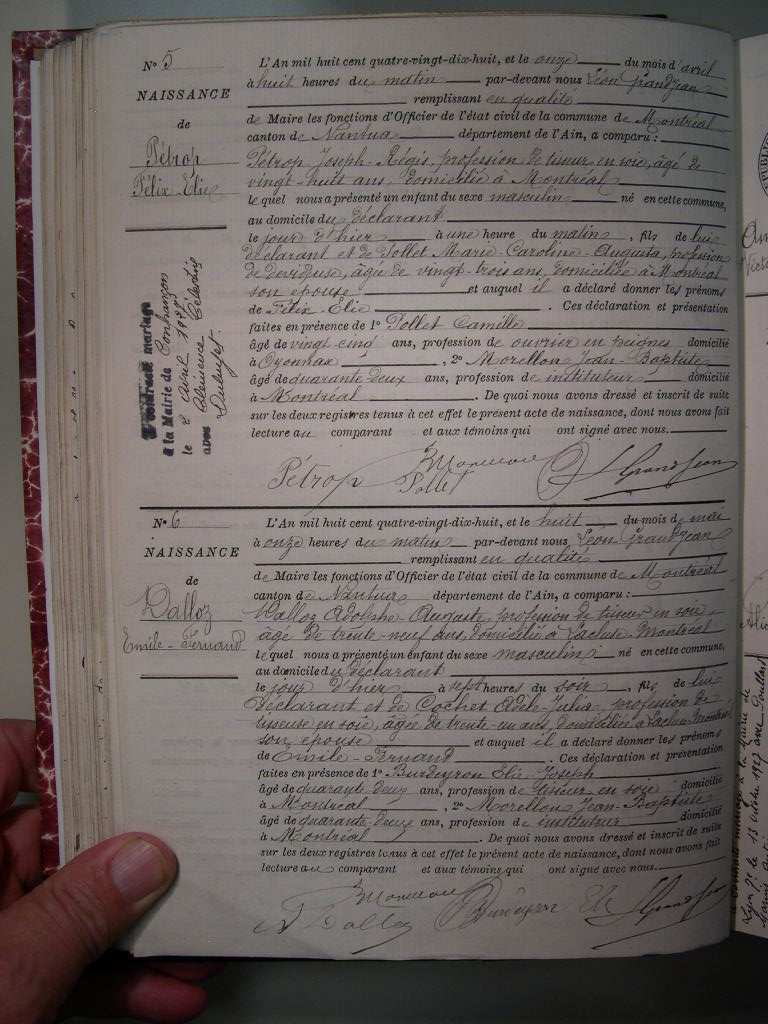 N° 5
NAISSANCE
de
Pétrop
Félix Elie
a contracté mariage
à la Mairie de
le 2 Avril 19
avec Clémence
L'An mil huit cent quatre-vingt-dix-huit, et le onze du mois d'avril
à huit heures du matin par-devant nous Léon Grandjean
remplissant en qualité
de Maire les fonctions d'Officier de l'état civil de la commune de Montréal
canton de Nantua département de l'Ain, a comparu :
Pétrop Joseph-Régis, profession de tisseur en soie, âgé de
vingt-huit ans, domicilié à Montréal
le quel nous a présenté un enfant du sexe masculin né en cette commune,
au domicile du déclarant
le jour d'hier à une heure du matin, fils de lui
déclarant et de Pollet Marie-Caroline-Augusta, profession
de dévideuse, âgée de vingt-trois ans, domiciliée à Montréal
son épouse et auquel il a déclaré donner les prénoms
de Félix Elie. Ces déclaration et présentation
faites en présence de 1° Pollet Camille
âgé de vingt cinq ans, profession de ouvrier en peignes domicilié
à Oyonnax, 2° Morellon Jean-Baptiste
âgé de quarante deux ans, profession de instituteur domicilié
à Montréal. De quoi nous avons dressé et inscrit de suite
sur les deux registres tenus à cet effet le présent acte de naissance, dont nous avons fait
lecture au comparant et aux témoins qui ont signé avec nous.
Pétrop Morellon Pollet L Grandjean
N° 6
NAISSANCE
de
Dalloz
Emile-Fernand
L'An mil huit cent quatre-vingt-dix-huit, et le huit du mois de mai
à onze heures du matin par-devant nous Léon Grandjean
remplissant en qualité
de Maire les fonctions d'Officier de l'état civil de la commune de Montréal
canton de Nantua département de l'Ain, a comparu :
Dalloz Adolphe Auguste, profession de tisseur en soie,
âgé de trente-neuf ans, domicilié à Lacluse, Montréal
le quel nous a présenté un enfant du sexe masculin né en cette commune,
au domicile du déclarant
le jour d'hier à sept heures du soir, fils de lui
déclarant et de Cochet Adèle Julie, profession de
tisseuse en soie, âgée de trente-un ans, domiciliée à Lacluse Montréal
son épouse et auquel il a déclaré donner les prénoms
de Emile-Fernand. Ces déclaration et présentation
faites en présence de 1° Burdeyron Elie Joseph
âgé de quarante deux ans, profession de tisseur en soie domicilié
à Montréal, 2° Morellon Jean-Baptiste
âgé de quarante deux ans, profession de instituteur domicilié
à Montréal. De quoi nous avons dressé et inscrit de suite
sur les deux registres tenus à cet effet le présent acte de naissance, dont nous avons fait
lecture au comparant et aux témoins qui ont signé avec nous.
Morellon
A Dalloz Burdeyron Elie L Grandjean